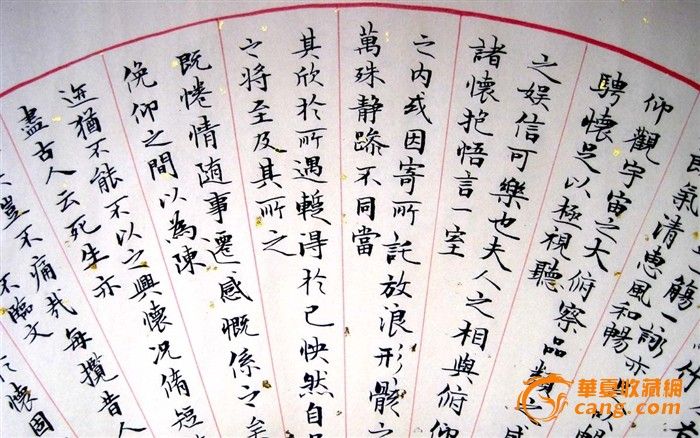 觴一詠亦
氣清惠風和暢
仰觀宇宙之大俯察品類之盛
騁懷足以極視聽
之娛信可樂也夫人之相與俯仰
諸懷抱悟言一室
之內或因寄所託放浪形骸之
萬殊静躁不同當
其欣於所遇暫得於己怏然自
之將至及其所之
既惓情随事遷感慨係之矣
俛仰之間以為陳
迹猶不能不以之興懷況脩短
盡古人云死生亦
豈不痛哉每攬昔人
不臨文
懷固
華夏收藏網
cang.com